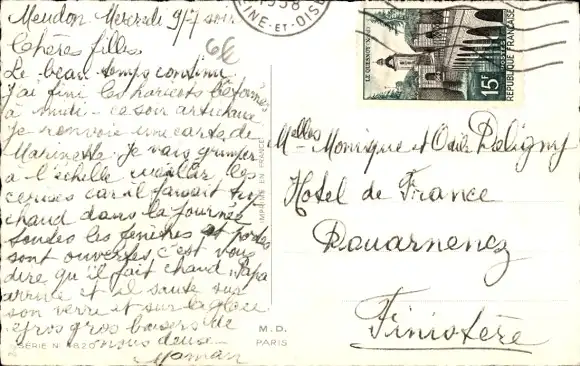 Meudon Mercredi 9/7 soir
Chères filles
Le beau temps continu
j'ai fini les haricots
à midi - ce soir artichaux
je renvoie une carte de
Marinette. Je vais grimper
à l'échelle cueillir les
cerises car il faisait trop
chaud dans la journée
toutes les fenêtres et portes
sont ouvertes c'est vous
dire qu'il fait chaud, Papa
arrive et il saute sur
son verre et sur la glace
gros gros baisers de
nous deux -
Maman
SÉRIE N°
M. D.
PARIS
IMPRIMÉ EN FRANCE
1958
SEINE-ET-OISE
LE QUESNOY
15F
POSTES
REPUBLIQUE FRANÇAISE
Melles Monique et Odile Deligny
Hotel de France
Douarnenez
Finistère